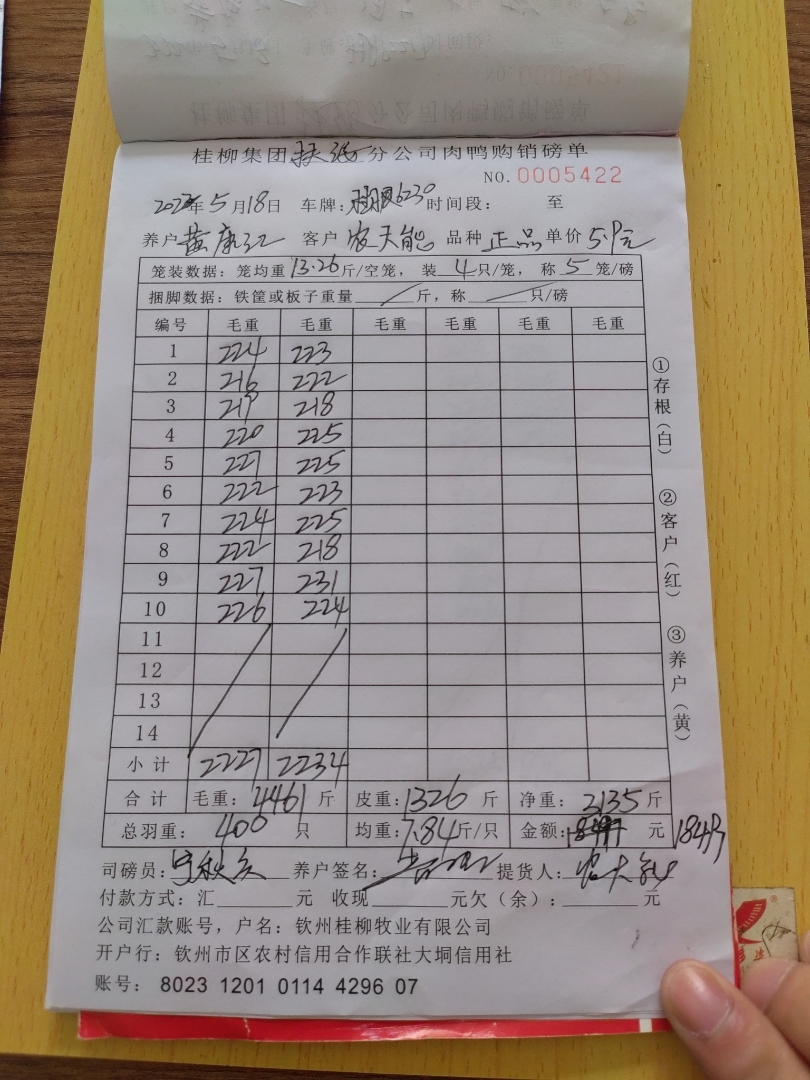 桂柳集团扶绥分公司肉鸭购销磅单
NO.0005422
年5月18日 车牌: 6230 时间段: 至
养户黄康江 客户农天能 品种正品 单价5.9元
笼装数据: 笼均重13.26斤/空笼, 装4只/笼, 称5笼/磅
捆脚数据: 铁筐或板子重量 斤, 称 只/磅
编号 毛重 毛重 毛重 毛重 毛重 毛重
1 224 223
2 216 222
3 219 218
4 220 225
5 227 225
6 222 223
7 224 225
8 222 218
9 227 231
10 226 224
11
12
13
14
小计 2227 2234
合计 毛重: 4461斤 皮重: 1326斤 净重: 3135斤
总羽重: 400只 均重: 7.84斤/只 金额: 元 18497
司磅员: 养户签名: 提货人: 农天能
付款方式: 汇 元 收现 元欠(余): 元
公司汇款账号, 户名: 钦州桂柳牧业有限公司
开户行: 钦州市区农村信用合作联社大垌信用社
账号: 8023 1201 0114 4296 07
①存根(白) ②客户(红) ③养户(黄)